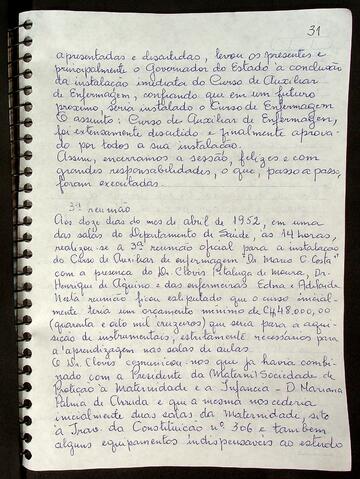 31
apresentadas e discutidas, levou os presentes e
principalmente o Governador do Estado a conclusão
da instalação imediata do Curso de Auxiliar
de Enfermagem, confiando que em um futuro
proximo, seria instalado o Curso de Enfermagem
O assunto: Curso de Auxiliar de Enfermagem,
foi extensamente discutido e finalmente aprova-
do por todos a sua instalação.
Assim, encerramos a sessão, felizes e com
grandes responsabilidades, o que, passo a passo,
foram executadas.
3ª reunião
Aos doze dias do mes de abril de 1952, em uma
das salas do Departamento de Saúde, as 14 horas,
realizou-se a 3ª reunião oficial para a instalação
do Curso de Auxiliar de enfermagem "Dr. Mario C. Costa"
com a presença do Dr. Clovis Pitaluga de Moura, Dr.
Henrique de Aquino e das enfermeiras Edna e Adelaide
Nesta reunião ficou estipulado que o curso inicial-
mente teria um orçamento minimo de Cr$48.000,00
(quarenta e oito mil cruzeiros) que seria para a aqui-
sição de instrumentais, estritamente necessários para
a aprendizagem nas salas de aulas.
O Dr. Clovis comunicou-nos que ja havia combi-
nado com a Presidente da (Maternal) Sociedade de
Proteção a Maternidade e a Infancia - D. Mariana
Palma de Arruda e que a mesma nos cederia
inicialmente duas salas da Maternidade, sito
à Trav. da Constituição nº 306 e tambem
alguns equipamentos indispensaveis ao estudo